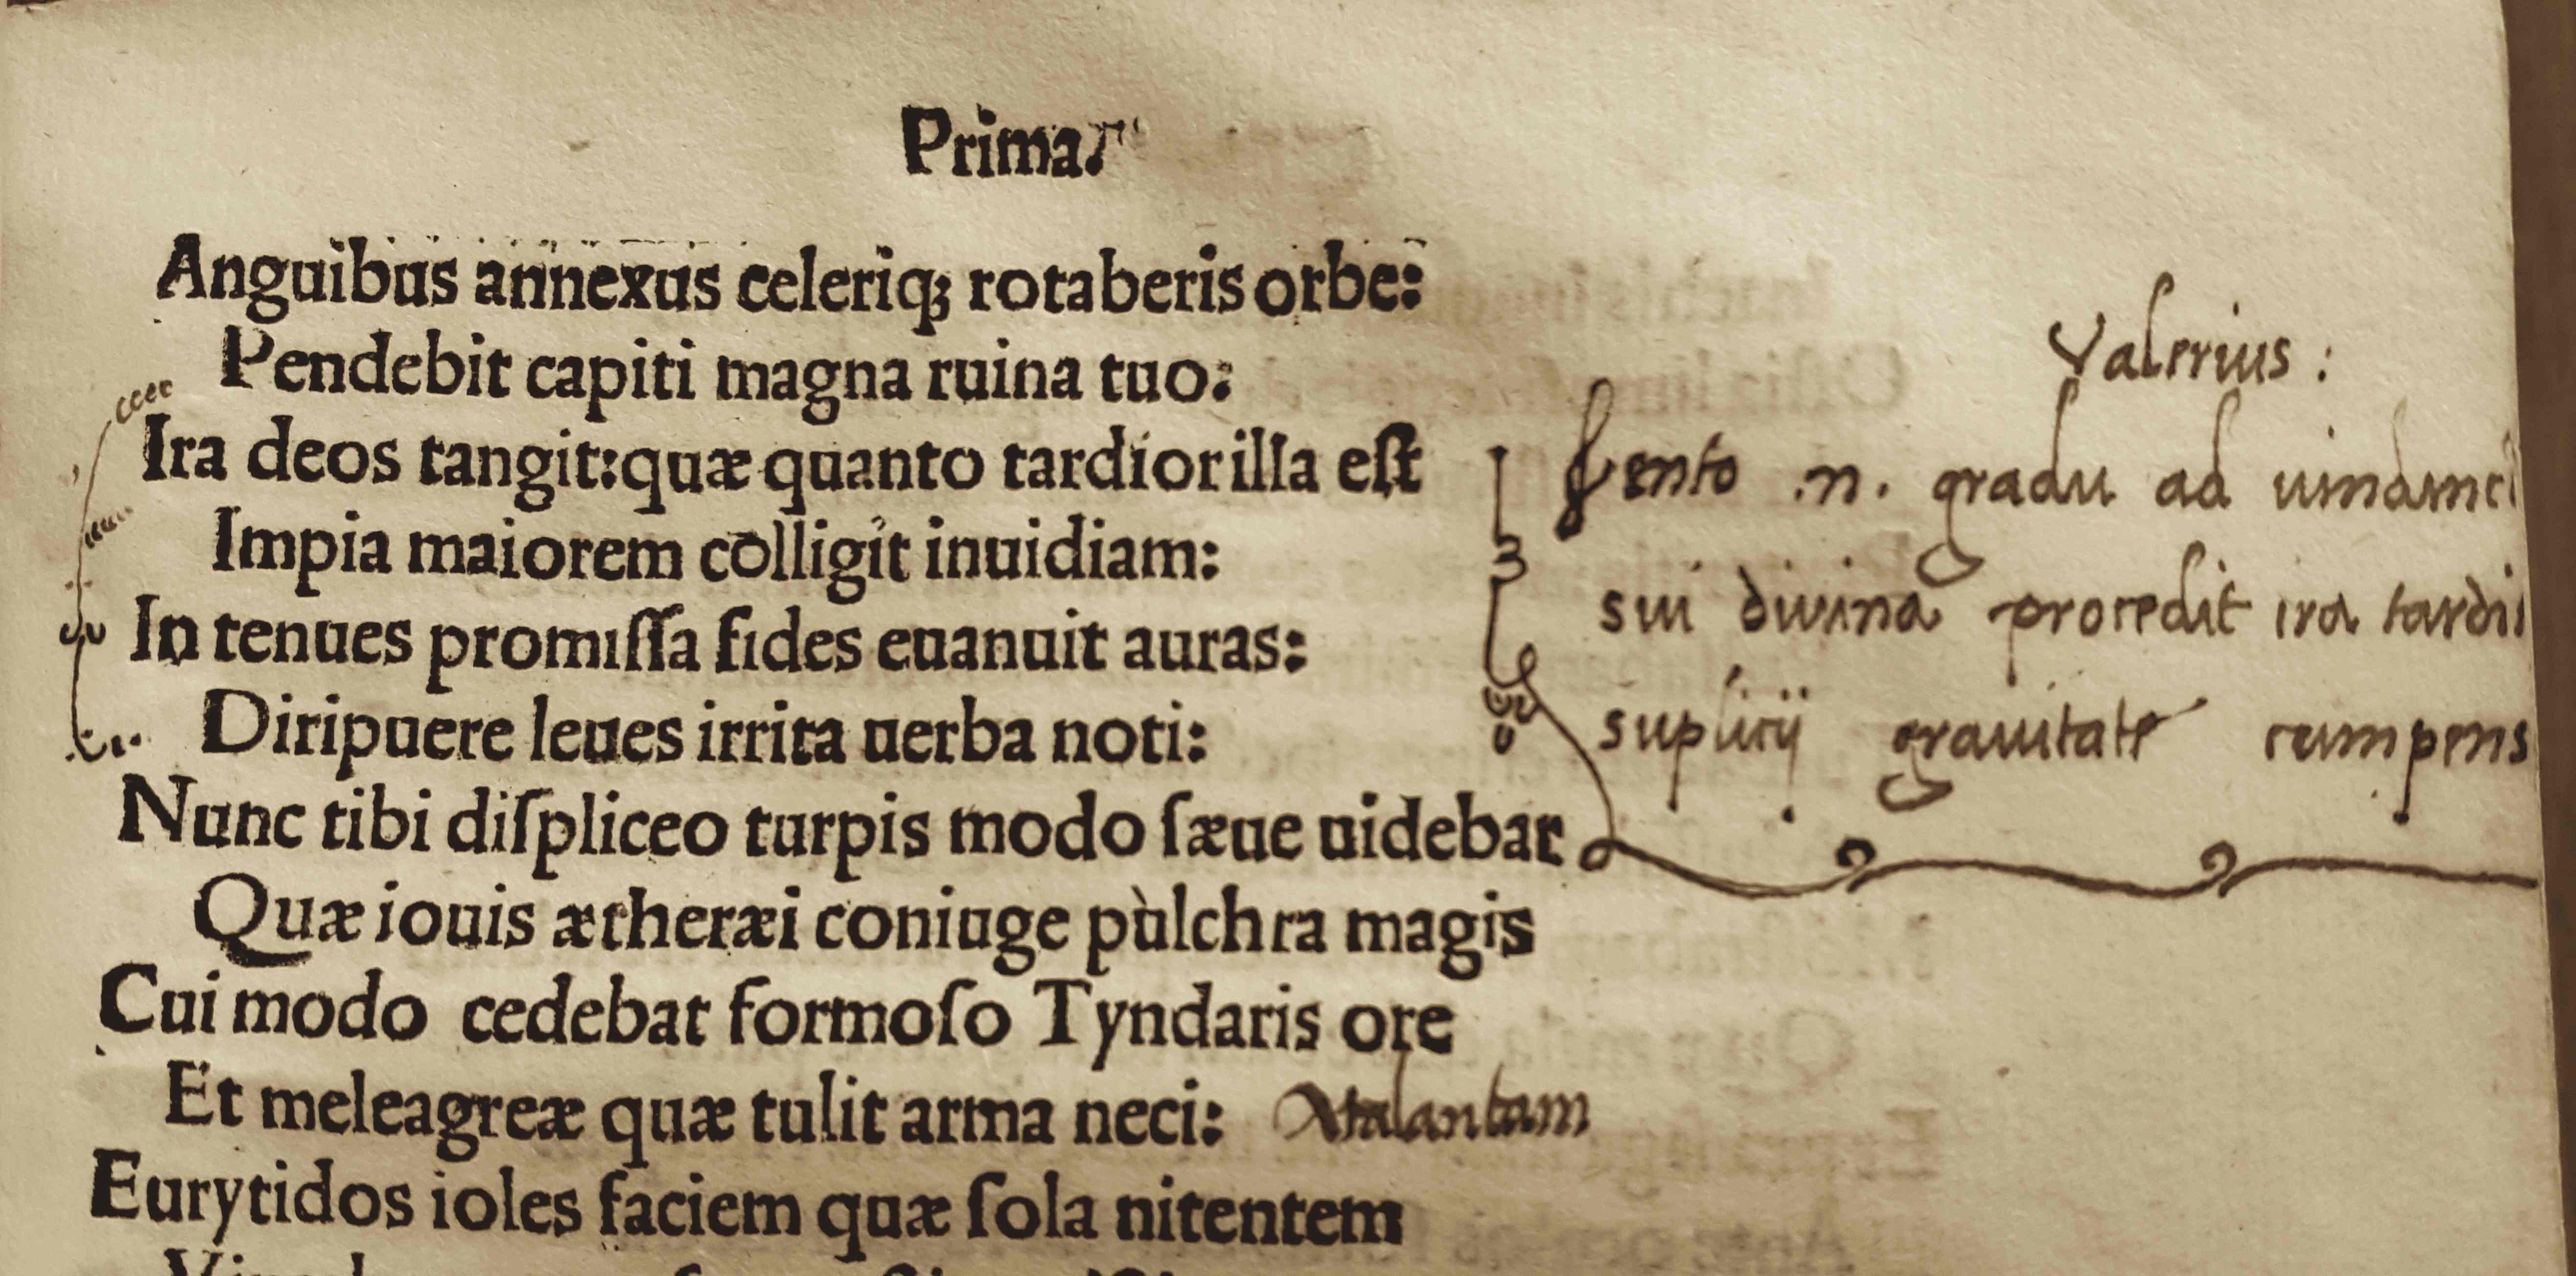 Prima.
Anguibus annexus celeriq; rotaberis orbe:
Pendebit capiti magna ruina tuo:
Ira deos tangit:quæ quanto tardior illa eſt
Impia maiorem colligit inuidiam:
In tenues promiſſa fides euanuit auras:
Diripuere leues irrita uerba noti:
Nunc tibi diſpliceo turpis modo ſæue uidebar
Quæ iouis ætheræi coniuge pùlchra magis
Cui modo cedebat formoſo Tyndaris ore
Et meleagreæ quæ tulit arma neci:
Atalantam
Eurytidos ioles faciem quæ ſola nitentem
Valerius:
Lento .n. gradu ad uindinct
sui divina procedit ira tardi
suplicij grauitate compens